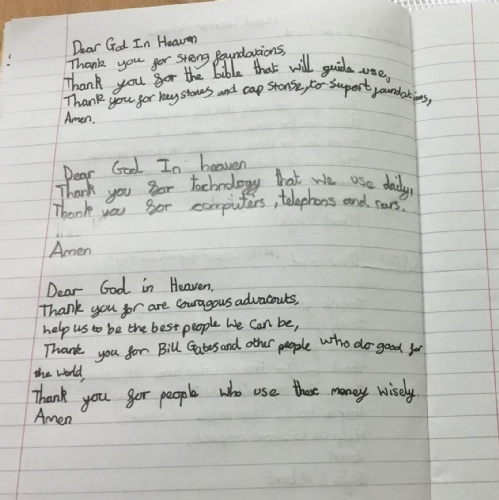 Dear God In Heaven
Thank you for strong foundations,
Thank you for the bible that will guide use,
Thank you for key stones and cap stonse, to support foundations,
Amen.
Dear God In heaven
Thank you for technology that we use daily,
Thank you for computers, telephons and cars.
Amen
Dear God in Heaven,
Thank you for are couragous advacouts,
help us to be the best people we can be,
Thank you for Bill Gates and other people who do good for
the world,
Thank you for people who use there money wisely.
Amen